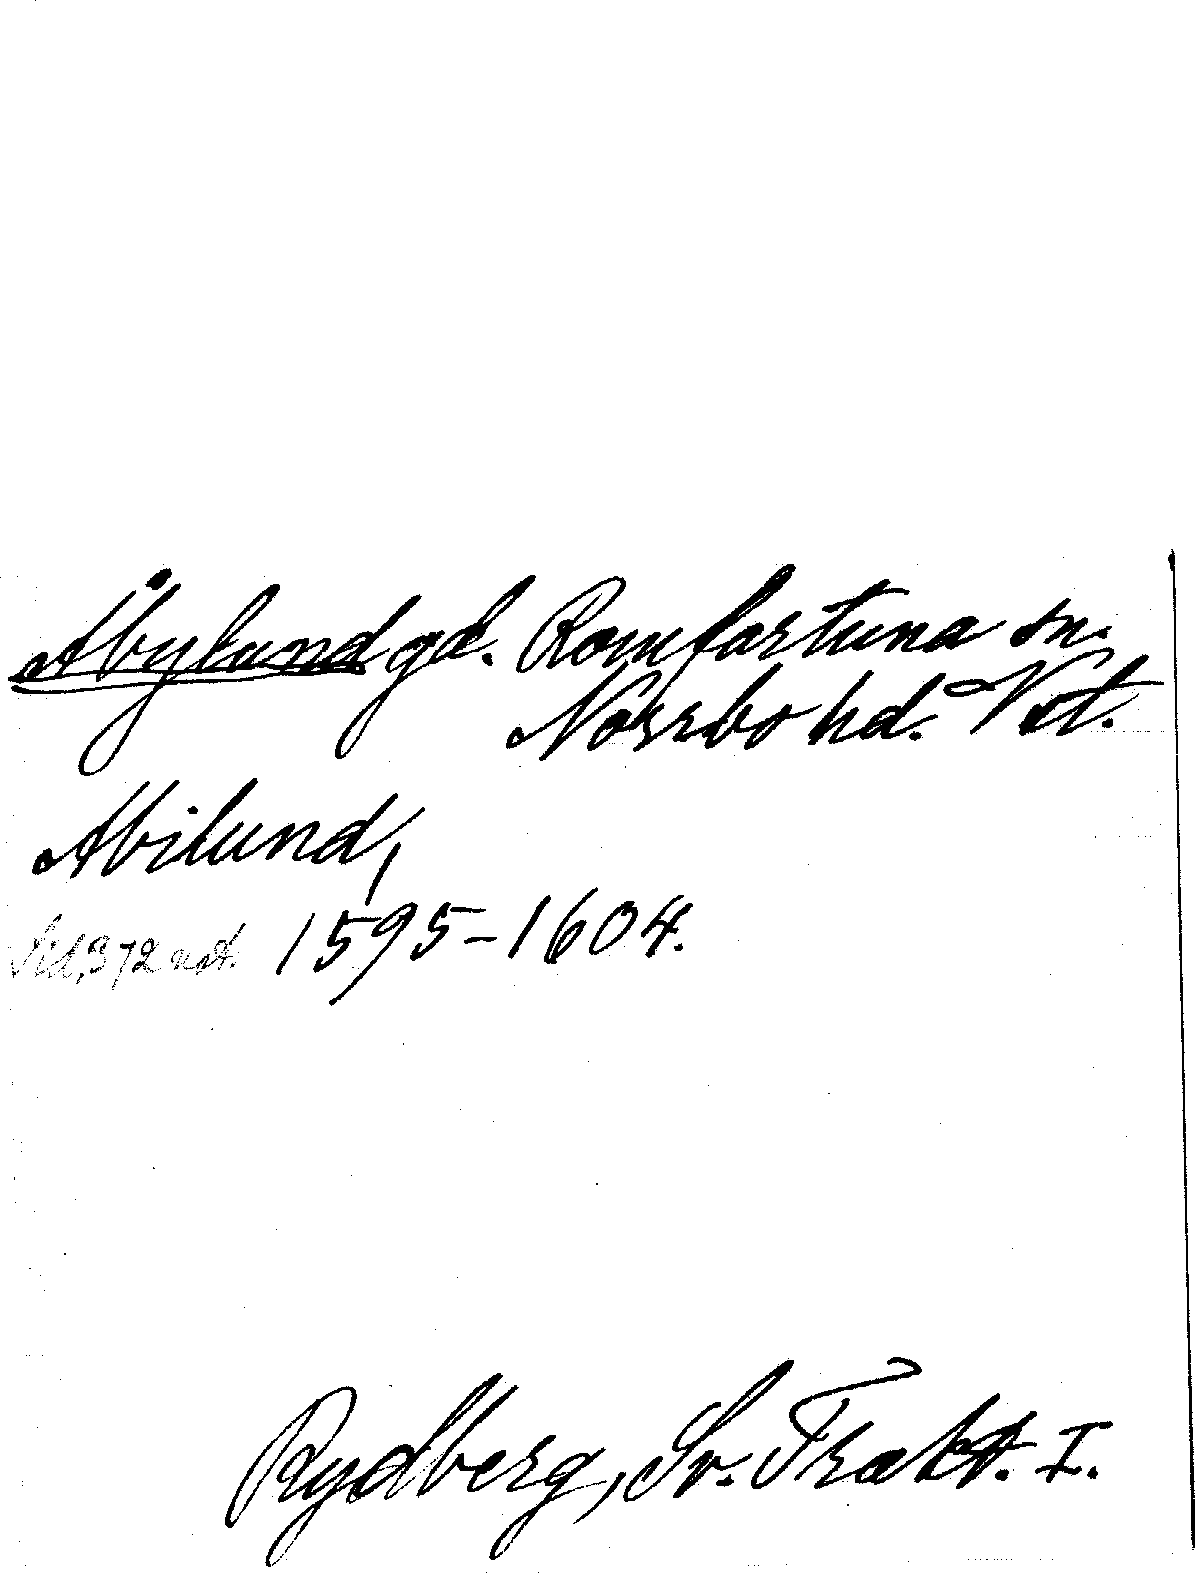 Åbylund gd. Romfartuna sn.
Norrbo hd. Vstl.
Abilund,
Sid. 372 not. 1595-1604.
Rydberg, Sv. Trakt. I.